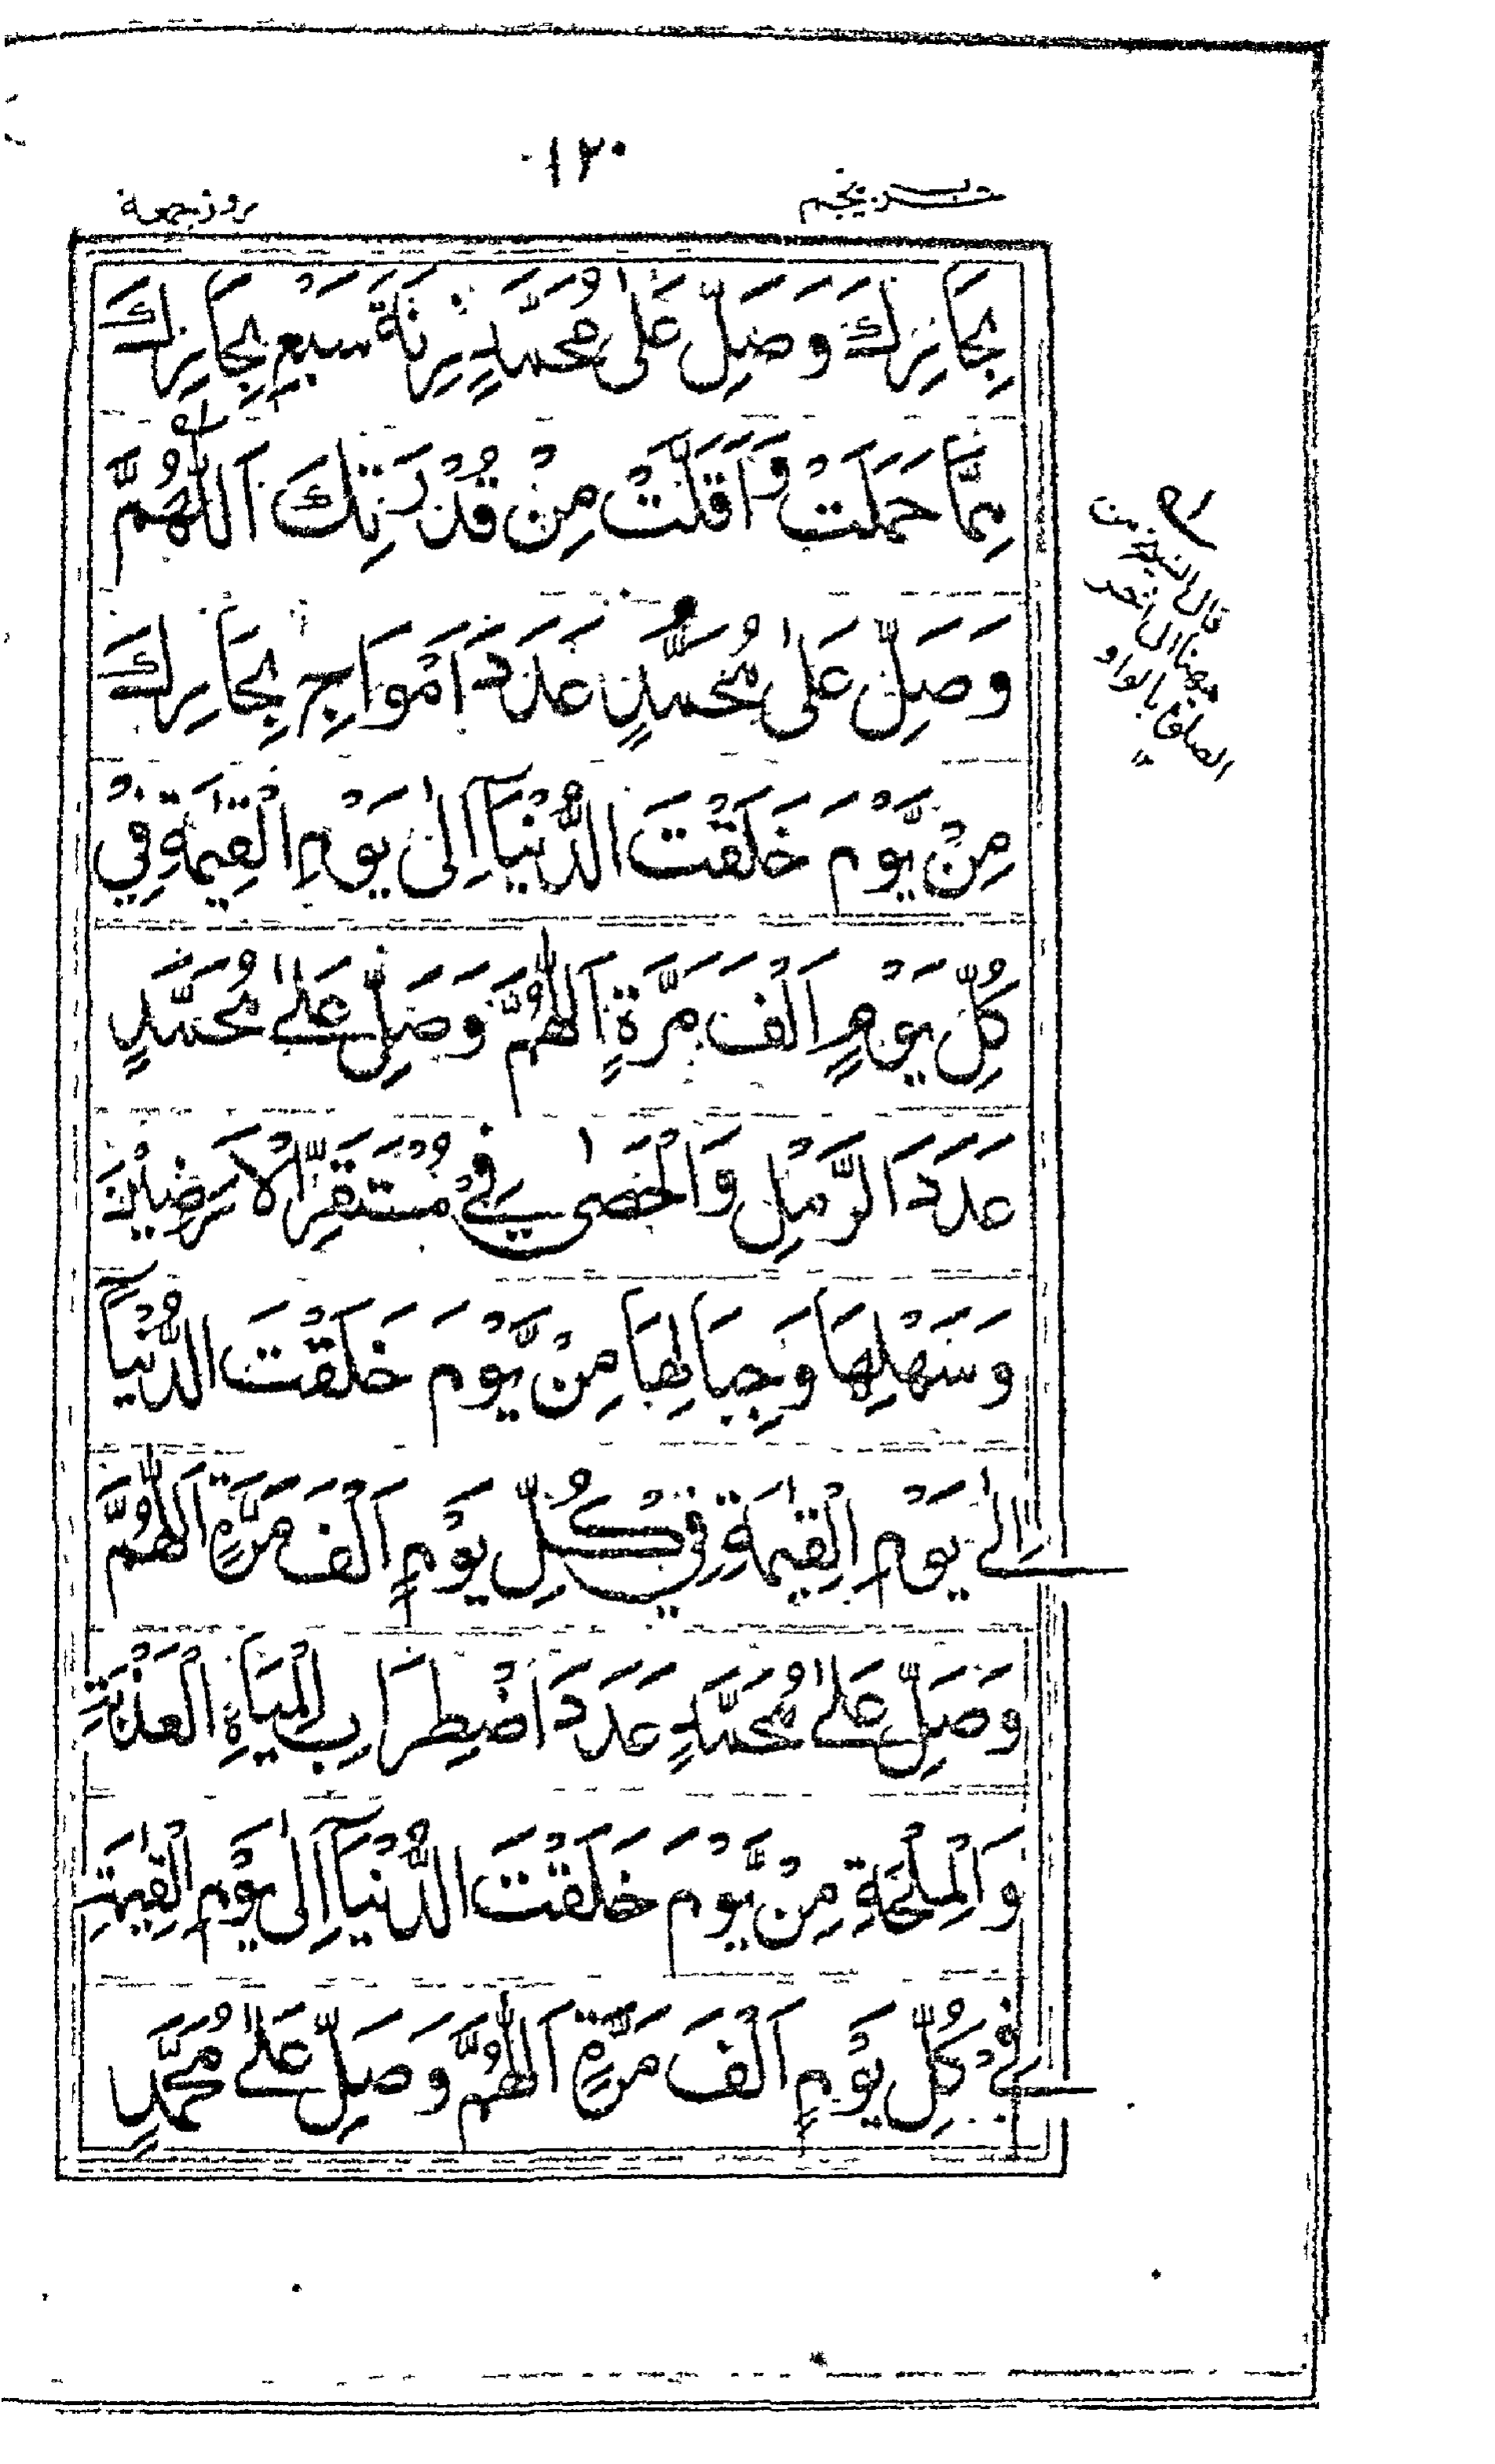 ١٢٠
حزب پنجم
روز جمعة
بِحَارِكَ وَصَلِّ عَلٰى مُحَمَّدٍ زِنَةَ سَبْعِ بِحَارِكَ
مِمَّا حَمَلَتْ وَاَقَلَّتْ مِنْ قُدْرَتِكَ اَللّٰهُمَّ
وَصَلِّ عَلٰى مُحَمَّدٍ عَدَدَ اَمْوَاجِ بِحَارِكَ
مِنْ يَّوْمَ خَلَقْتَ الدُّنْيَآ اِلٰى يَوْمِ الْقِيٰمَةِ فِيْ
كُلِّ يَوْمٍ اَلْفَ مَرَّةٍ اَللّٰهُمَّ وَصَلِّ عَلٰى مُحَمَّدٍ
عَدَدَ الرَّمْلِ وَالْحَصٰى فِيْ مُسْتَقَرِّ الْاَرَضِيْنَ
وَسَهْلِهَا وَجِبَالِهَا مِنْ يَّوْمَ خَلَقْتَ الدُّنْيَآ
اِلٰى يَوْمِ الْقِيٰمَةِ فِيْ كُلِّ يَوْمٍ اَلْفَ مَرَّةٍ اَللّٰهُمَّ
وَصَلِّ عَلٰى مُحَمَّدٍ عَدَدَ اضْطِرَابِ الْمِيَاهِ الْعَذْبَةِ
وَالْمِلْحَةِ مِنْ يَّوْمَ خَلَقْتَ الدُّنْيَآ اِلٰى يَوْمِ الْقِيٰمَةِ
فِيْ كُلِّ يَوْمٍ اَلْفَ مَرَّةٍ اَللّٰهُمَّ وَصَلِّ عَلٰى مُحَمَّدٍ
قال الشيخ
بالواو